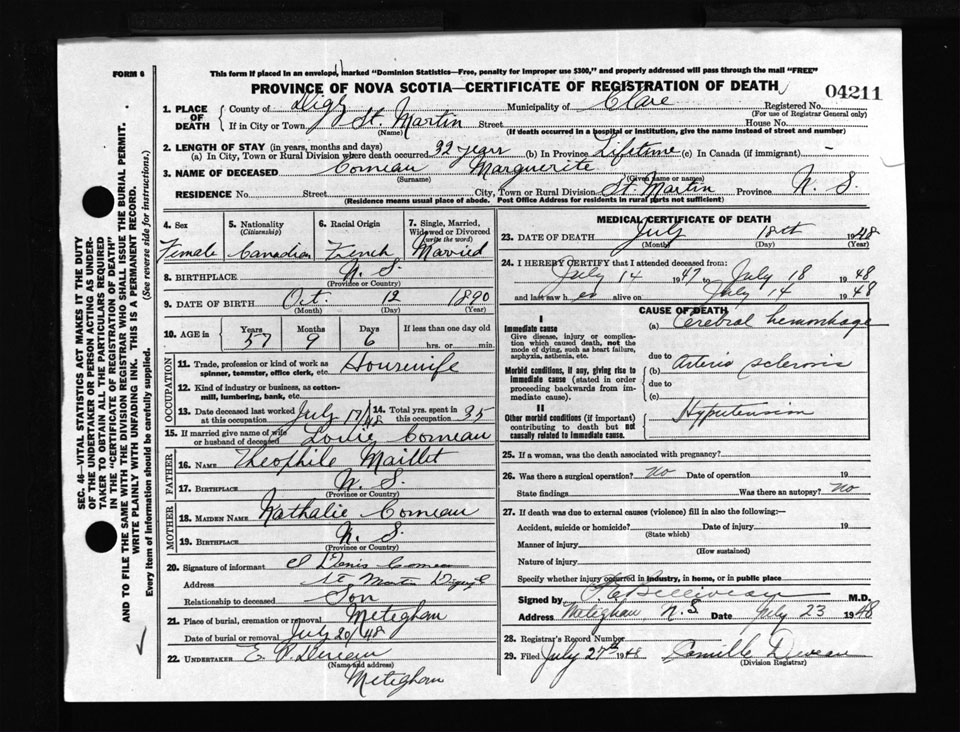 FORM 6
This form if placed in an envelope, marked "Dominion Statistics—Free, penalty for improper use $300," and properly addressed will pass through the mail "FREE"
PROVINCE OF NOVA SCOTIA—CERTIFICATE OF REGISTRATION OF DEATH
04211
1. PLACE OF DEATH
County of Digby Municipality of Clare Registered No.
(For use of Registrar General only)
If in City or Town St. Martin Street House No.
(Name) (If death occurred in a hospital or institution, give the name instead of street and number)
2. LENGTH OF STAY (in years, months and days)
(a) In City, Town or Rural Division where death occurred 32 years (b) In Province Lifetime (c) In Canada (if immigrant) —
3. NAME OF DECEASED Comeau Marguerite
(Surname) (Given name or names)
RESIDENCE No. Street City, Town or Rural Division St. Martin Province N. S.
(Residence means usual place of abode. Post Office Address for residents in rural parts not sufficient)
4. Sex 5. Nationality (Citizenship) 6. Racial Origin 7. Single, Married, Widowed or Divorced (write the word)
Female Canadian French Married
8. BIRTHPLACE N. S.
(Province or Country)
9. DATE OF BIRTH Oct. 12 1890
(Month) (Day) (Year)
10. AGE in Years Months Days If less than one day old
57 9 6 hrs. or min.
OCCUPATION
11. Trade, profession or kind of work as spinner, teamster, office clerk, etc. Housewife
12. Kind of industry or business, as cotton-mill, lumbering, bank, etc.
13. Date deceased last worked at this occupation July 17/48 14. Total yrs. spent in this occupation 35
15. If married give name of wife or husband of deceased Louie Comeau
FATHER
16. NAME Theophile Maillet
17. BIRTHPLACE N. S.
(Province or Country)
MOTHER
18. MAIDEN NAME Nathalie Comeau
19. BIRTHPLACE N. S.
(Province or Country)
20. Signature of informant Denis Comeau
Address St Martin
Relationship to deceased Son
21. Place of burial, cremation or removal Meteghan
Date of burial or removal July 20/48
22. UNDERTAKER E. P.
(Name and address)
Meteghan
MEDICAL CERTIFICATE OF DEATH
23. DATE OF DEATH July 18th 1948
(Month) (Day) (Year)
24. I HEREBY CERTIFY that I attended deceased from:
July 14 1947 to July 18 1948
and last saw h er alive on July 14 1948
CAUSE OF DEATH
I
Immediate cause
Give disease, injury or complication which caused death, not the mode of dying, such as heart failure, asphyxia, asthenia, etc.
(a) Cerebral hemorrhage
due to
Morbid conditions, if any, giving rise to immediate cause (stated in order proceeding backwards from immediate cause).
(b) Arterio sclerosis
due to
(c)
II
Other morbid conditions (if important) contributing to death but not causally related to immediate cause.
Hypertension
25. If a woman, was the death associated with pregnancy?
26. Was there a surgical operation? no Date of operation 19
State findings Was there an autopsy? no
27. If death was due to external causes (violence) fill in also the following:—
Accident, suicide or homicide? Date of injury 19
(State which)
Manner of injury
(How sustained)
Nature of injury
Specify whether injury occurred in industry, in home, or in public place
Signed by Belliveau M.D.
Address Meteghan N. S Date July 23 1948
28. Registrar's Record Number
29. Filed July 27th 1948 Camille Deveau
(Division Registrar)
SEC. 46—VITAL STATISTICS ACT MAKES IT THE DUTY
OF THE UNDERTAKER OR PERSON ACTING AS UNDER-
TAKER TO OBTAIN ALL THE PARTICULARS REQUIRED
IN THE "CERTIFICATE OF REGISTRATION OF DEATH"
AND TO FILE THE SAME WITH THE DIVISION REGISTRAR WHO SHALL ISSUE THE BURIAL PERMIT.
WRITE PLAINLY WITH UNFADING INK. THIS IS A PERMANENT RECORD.
Every item of information should be carefully supplied. (See reverse side for instructions.)